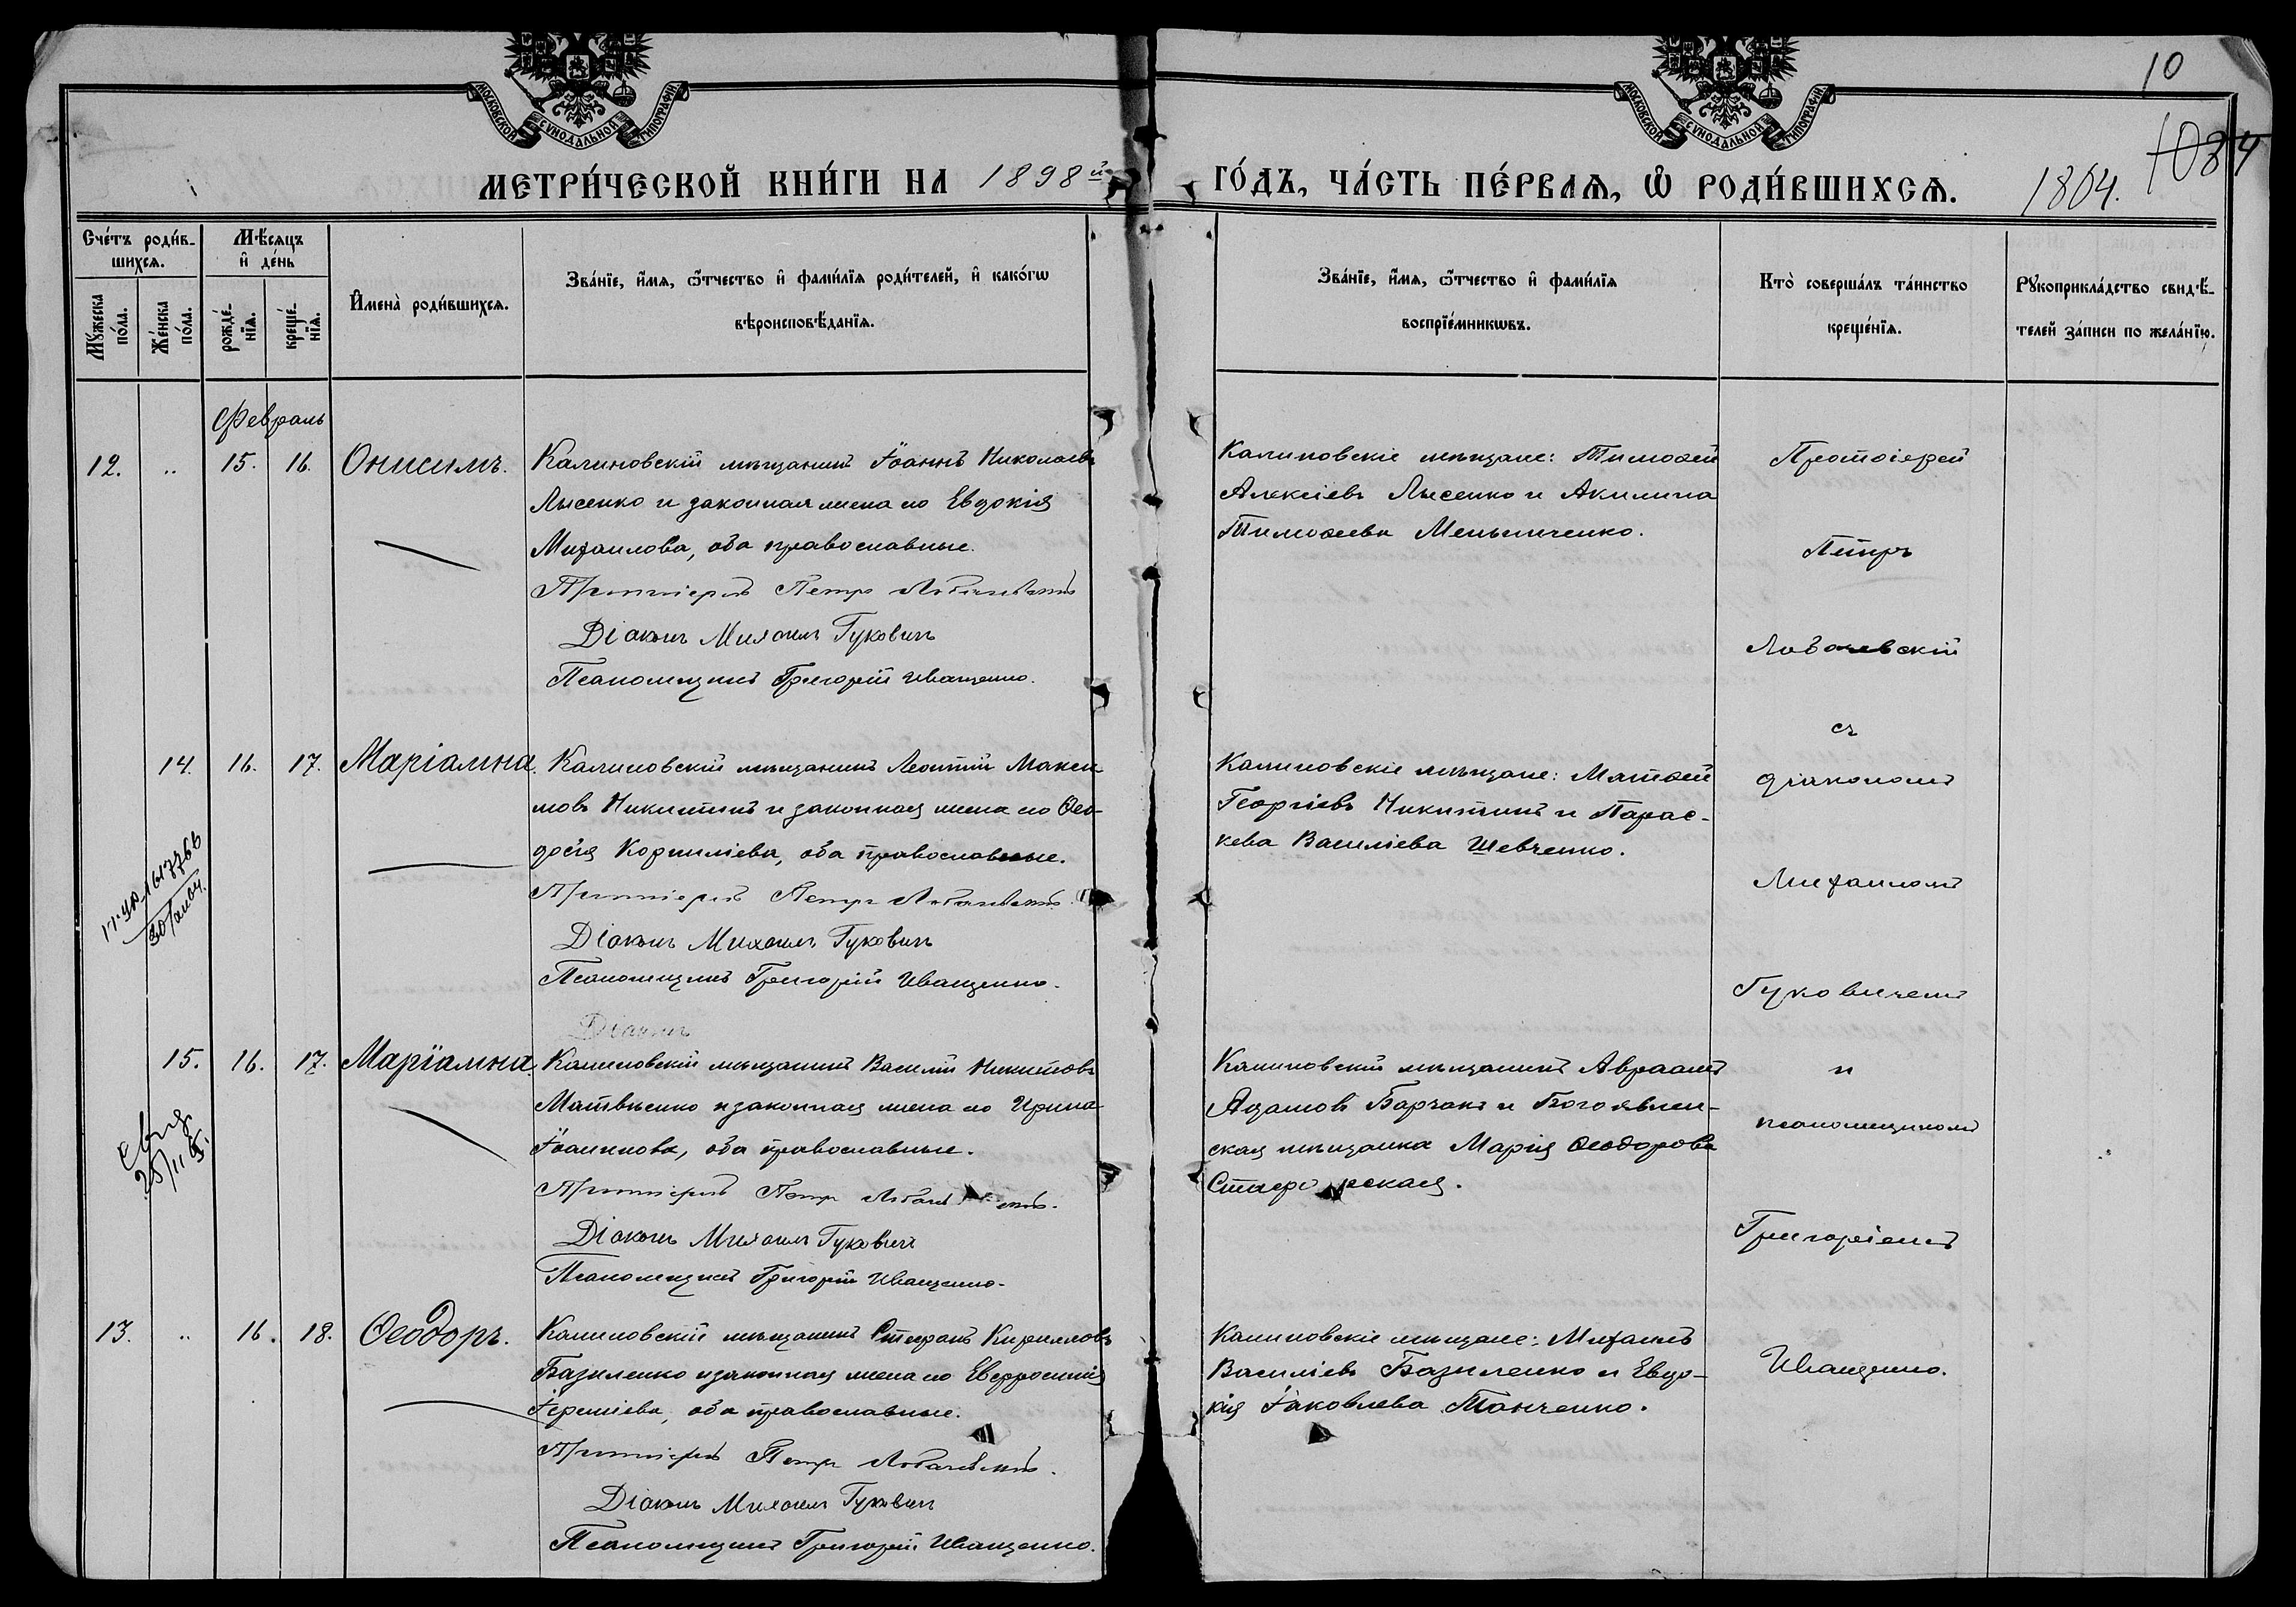 10
1084
МОСКОВСКОЙ СѴНОДАЛЬНОЙ ТИПОГРАФІИ
МОСКОВСКОЙ СѴНОДАЛЬНОЙ ТИПОГРАФІИ
МЕТРИ́ЧЕСКОЙ КНИ́ГИ НА 1898й
ГО́ДЪ, ЧА́СТЬ ПЕ́РВАѦ, Ѡ҆ РОДИ́ВШИХСѦ. 1804.
Сче́тъ роди́в-
шихсѧ.
Мꙋ́жеска по́ла.
Же́нска по́ла.
Мѣ́сѧцъ и҆ де́нь
рожде́-нїѧ.
креще́-нїѧ.
И҆мена̀ роди́вшихсѧ.
Зва́нїе, и҆́мѧ, ѻ҆́тчество и҆ фами́лїѧ роди́телей, и҆ како́гѡ
вѣроисповѣ́данїѧ.
Зва́нїе, и҆́мѧ, ѻ҆́тчество и҆ фами́лїѧ
воспрїе́мникѡвъ.
Кто̀ соверша́лъ та́инство
креще́нїѧ.
Рꙋкоприкла́дство свидѣ́-
телей за́писи по жела́нїю.
Февраль
12. .. 15. 16. Онисимъ.
Калиновскій мѣщанинъ Іоаннъ Николаевъ
Лысенко и законная жена его Евдокія
Михаилова, оба православные.
Протоіерей Петръ Лобачевскій
Діаконъ Михаилъ Гуковичъ
Псаломщикъ Григорій Иващенко.
Калиновскіе мѣщане: Тимоѳей
Алексіевъ Лысенко и Акилина
Тимоѳеева Мельниченко.
14. 16. 17. Маріамна.
Калиновскій мѣщанинъ Леонтій Макси-
мовъ Никитинъ и законная жена его Ѳео-
досія Корниліева, оба православные.
Протоіерей Петръ Лобачевскій
Діаконъ Михаилъ Гуковичъ
Псаломщикъ Григорій Иващенко.
Діаконъ
Калиновскіе мѣщане: Матѳей
Георгіевъ Никитинъ и Парас-
кева Василіева Шевченко.
15. 16. 17. Маріамна.
Калиновскій мѣщанинъ Василій Никитовъ
Матвѣенко и законная жена его Ирина
Іоаннова, оба православные.
Протоіерей Петръ
Діаконъ Михаилъ Гуковичъ
Псаломщикъ Григорій Иващенко.
Калиновскій мѣщанинъ Авраамъ
Адамовъ Барчакъ и Богоявлен-
ская мѣщанка Марія Ѳеодорова
13. .. 16. 18. Ѳеодоръ.
Калиновскій мѣщанинъ Стефанъ Кирилловъ
Базиленко и законная жена его Евфросинія
Іереміева, оба православные.
Протоіерей Петръ Лобачевскій.
Діаконъ Михаилъ Гуковичъ
Псаломщикъ Григорій Иващенко.
Калиновскіе мѣщане: Михаилъ
Василіевъ Базиленко и Евдо-
кія Іаковлева Танченко.
Протоіерей
Петръ
Лобачевскій
съ
діакономъ
Михаиломъ
Гуковичемъ
и
псаломщикомъ
Григоріемъ
Иващенко.